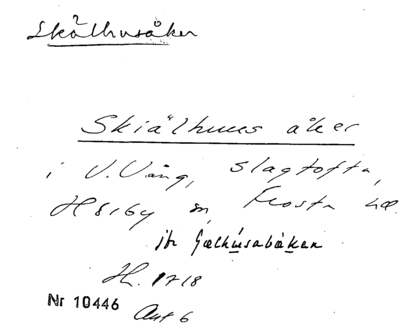 Skälhusåker
Skiälhuus åker
i V. Vång, Slagtofta,
Hörby sn, Frosta hd.
jfr Gælhúsabåkan
H. 1718
Nr 10446
Akt 6